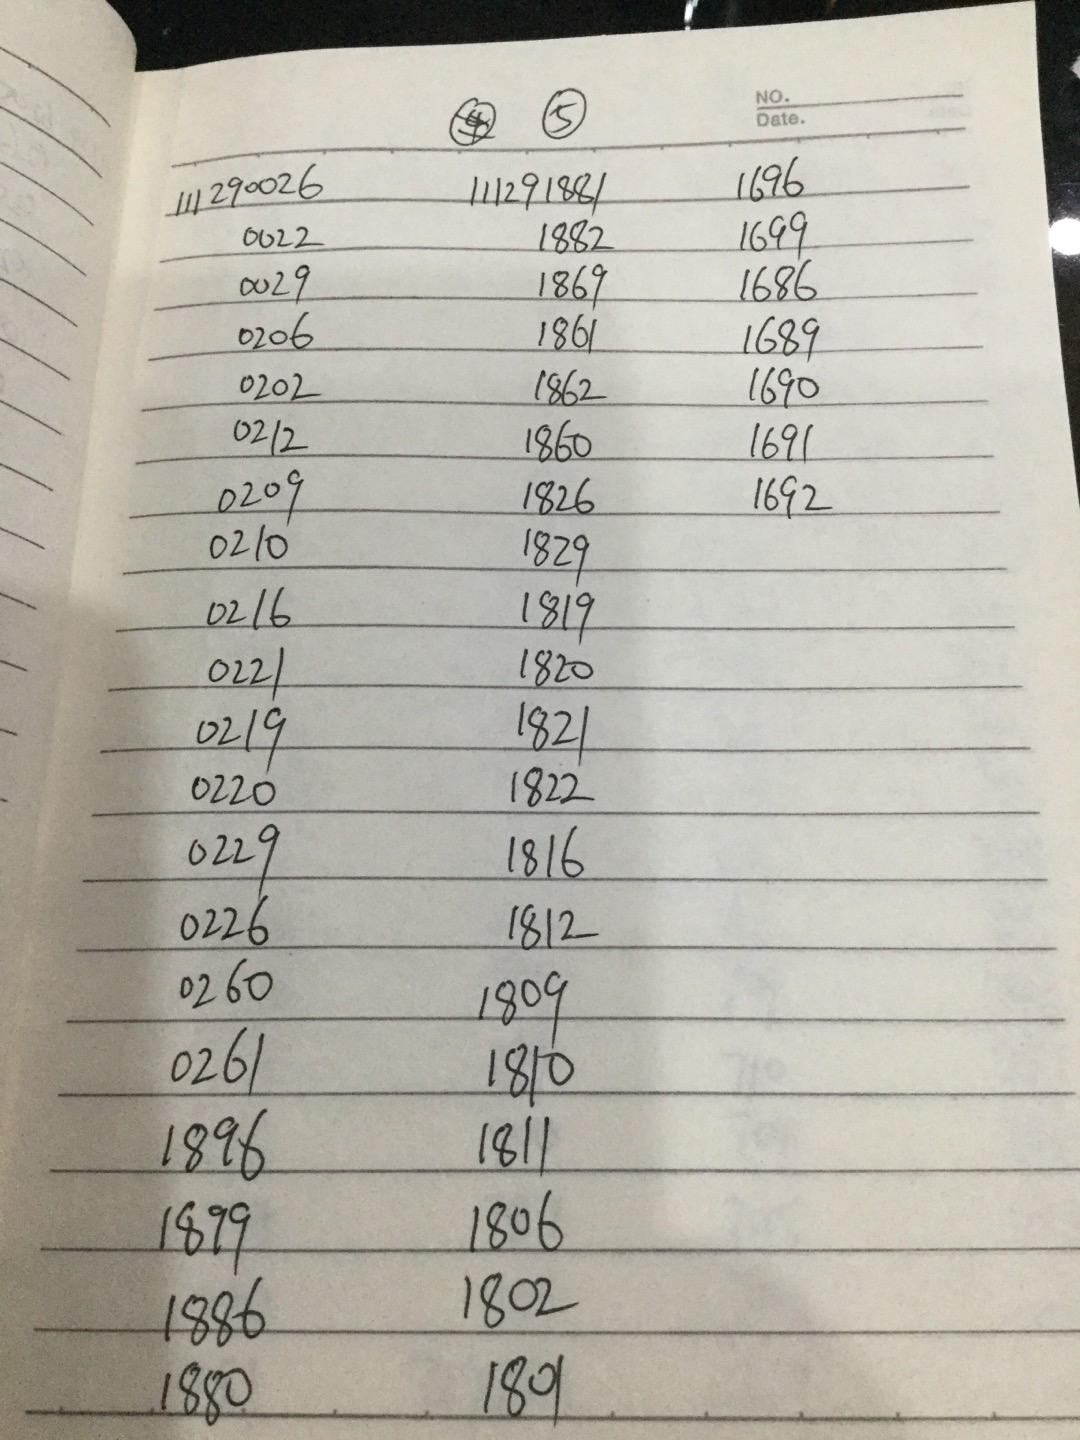 ⑤
NO.
Date.
111290026 111291881 1696
0022 1882 1699
0029 1869 1686
0206 1861 1689
0202 1862 1690
0212 1860 1691
0209 1826 1692
0210 1829
0216 1819
0221 1820
0219 1821
0220 1822
0229 1816
0226 1812
0260 1809
0261 1810
1896 1811
1899 1806
1886 1802
1880 1801